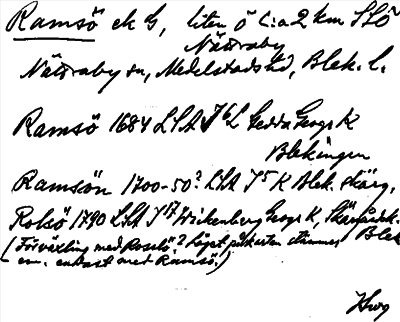 Ramsö ek G, liten ö c:a 2 km SSÖ
Nättraby
Nättraby sn, Medelstads hd, Blek. l.
Ramsö 1684 LSA J6L Gedda Geogr K
Blekingen
Ramsön 1700-50? LSA J5 K Blek. skärg.
Rolsö 1790 LSA J17 Wickenberg Geogr K, Skärgårdk.
Blek
(Förväxling med Rosslö? Läget på kartan stämmer
em. endast med Ramsö.)